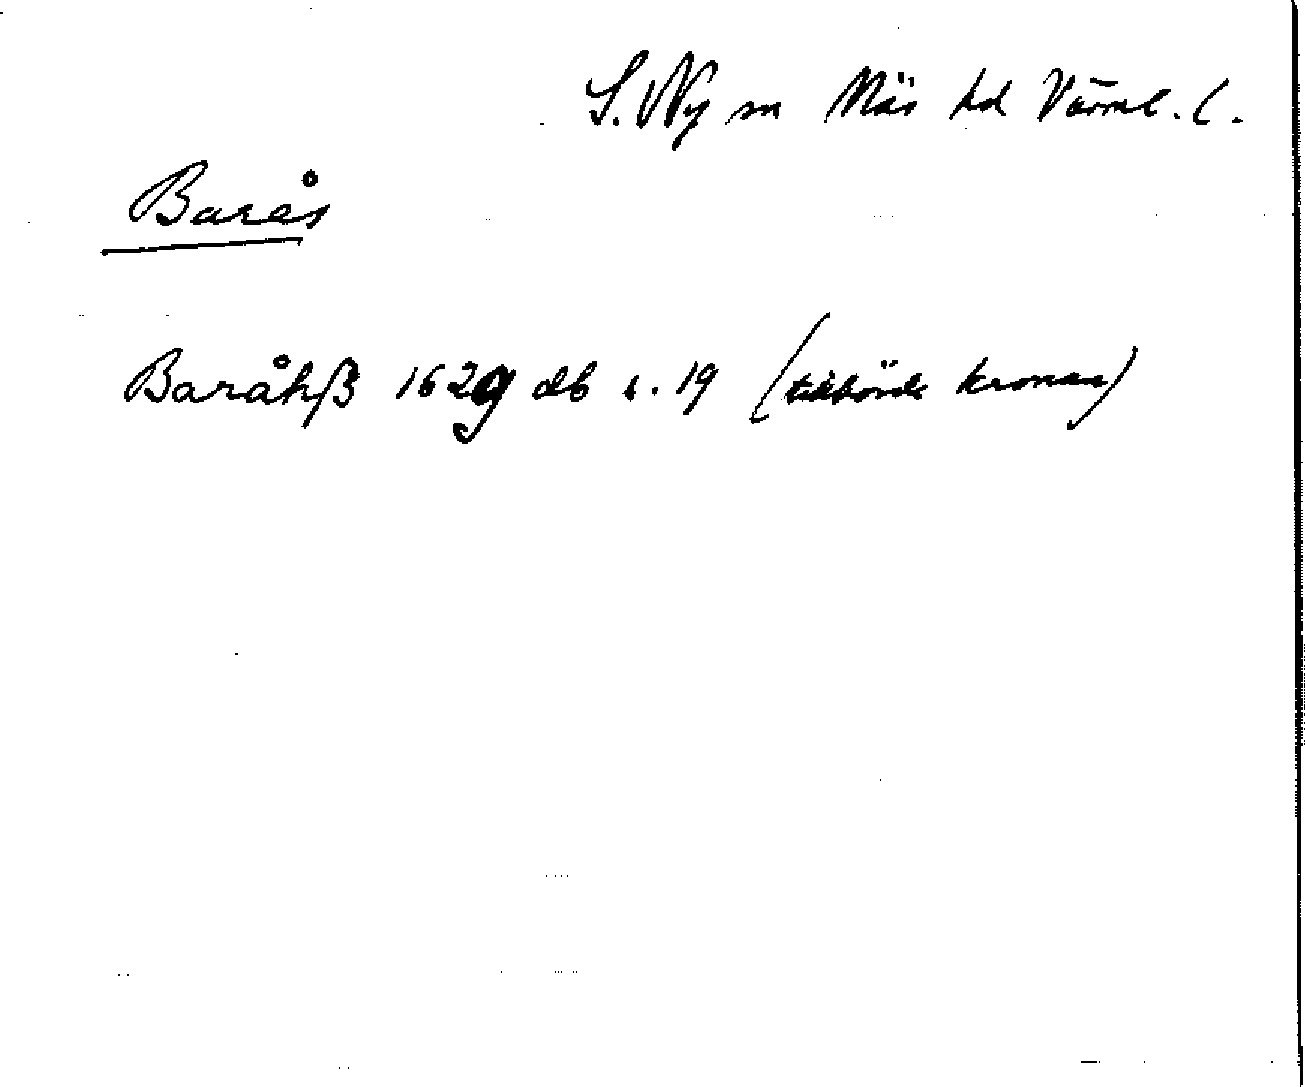 S. Ny sn Näs hd Värml. l.
Barås
Baråhß 1629 db s. 19 (tillhörde kronan)